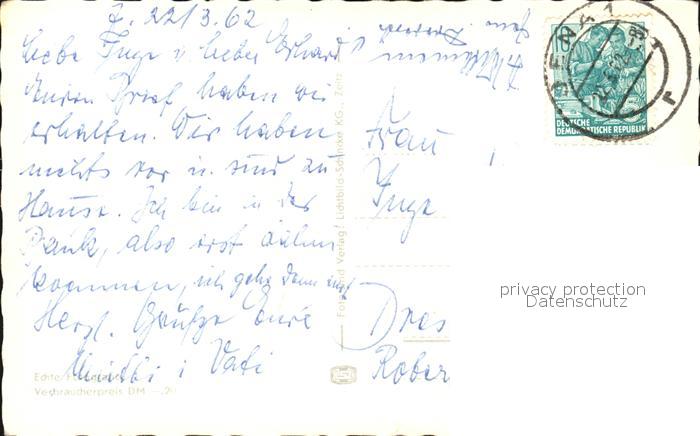 J. 22/3.62
Liebe Inge u. lieber Erhard!
Euren Brief haben wir
erhalten. Wir haben
nichts vor u. sind zu
Hause. Ich bin in der
Bank, also erst
kommen, ich gehe dann
Herzl. Grüße Eure
Mutti u. Vati
Frau
Inge
Dres
Rober
JENA 1
10
DEUTSCHE
DEMOKRATISCHE REPUBLIK
Foto und Verlag: Lichtbild-Schincke KG., Zeitz
Verbraucherpreis DM —,20
privacy protection
Datenschutz